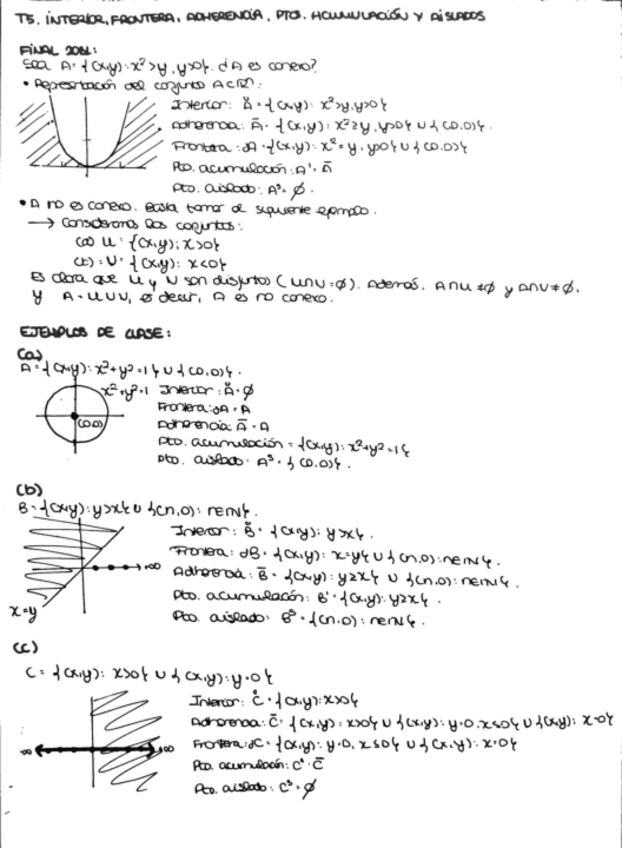 T5. INTERIOR, FRONTERA, ADHERENCIA, PTOS. ACUMULACIÓN Y AISLADOS
FINAL 2021:
Sea A = {(x,y): x²>y, y>0}. ¿A es conexo?
• Representación del conjunto A⊂ℝ²:
Interior: Å = {(x,y): x²>y, y>0}
Adherencia: Ā = {(x,y): x²≥y, y>0} ∪ {(0,0)}.
Frontera: ∂A = {(x,y): x²=y, y>0} ∪ {(0,0)}
Pto. acumulación: A' = Ā
Pto. aislado: Aˢ = ∅.
• A no es conexo. Basta tomar el siguiente ejemplo.
→ Consideramos los conjuntos:
(a) U = {(x,y): x>0}
(b) = V = {(x,y): x<0}
Es claro que U y V son disjuntos (U∩V=∅). Además, A∩U ≠∅ y A∩V≠∅.
y A = U∪V, es decir, A es no conexo.
EJEMPLOS DE CLASE:
(a)
A = {(x,y): x²+y²=1} ∪ {(0,0)}.
x²+y²=1
(0,0)
Interior: Å = ∅
Frontera: ∂A = A
Adherencia: Ā = A
Pto. acumulación = {(x,y): x²+y²=1}
Pto. aislado = Aˢ = {(0,0)}.
(b)
B = {(x,y): y>x} ∪ {(n,0): n∈ℕ}.
+∞
x=y
Interior: B̊ = {(x,y): y>x}.
Frontera: ∂B = {(x,y): x=y} ∪ {(n,0): n∈ℕ}.
Adherencia: B̄ = {(x,y): y≥x} ∪ {(n,0): n∈ℕ}.
Pto. acumulación: B' = {(x,y): y≥x}.
Pto. aislado: Bˢ = {(n,0): n∈ℕ}.
(c)
C = {(x,y): x>0} ∪ {(x,y): y=0}
-∞
+∞
Interior: C̊ = {(x,y): x>0}
Adherencia: C̄ = {(x,y): x>0} ∪ {(x,y): y=0, x≤0} ∪ {(x,y): x=0}
Frontera: ∂C = {(x,y): y=0, x≤0} ∪ {(x,y): x=0}
Pto. acumulación: C' = C̄
Pto. aislado: Cˢ = ∅